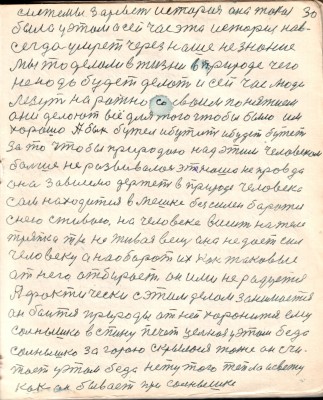 системы заявляет история она такая 30
была у этом а сей час эта история нав-
сегда умрет через наше незнание
Мы то делали в жизни в природе чего
не надо будет делать и сей час люди
лезут на ратно со своим понятием
они делают всё для того чтобы было им
хорошо А бык бутел и бутит и будет бутеть
за то чтобы природою над этим человеком
больше не развивалася это наша не правда
она зависимо держет в природе человека
сам находится в мешке бессилен бароти
с него стиваю. на человеке висит на теле
тряпка три не живая вещь она не дает сил
человеку а наоборот их как таковые
от него отбирает он ими не радуется
А фрактически с этим делом занимается
он боится природы от неё хоронится ему
солнышко в спину печет целкой у этом беда
солнышко за горою скрылося тоже он счи-
тает у этом беда нету того тепла и свету
как он бывает при солнышке